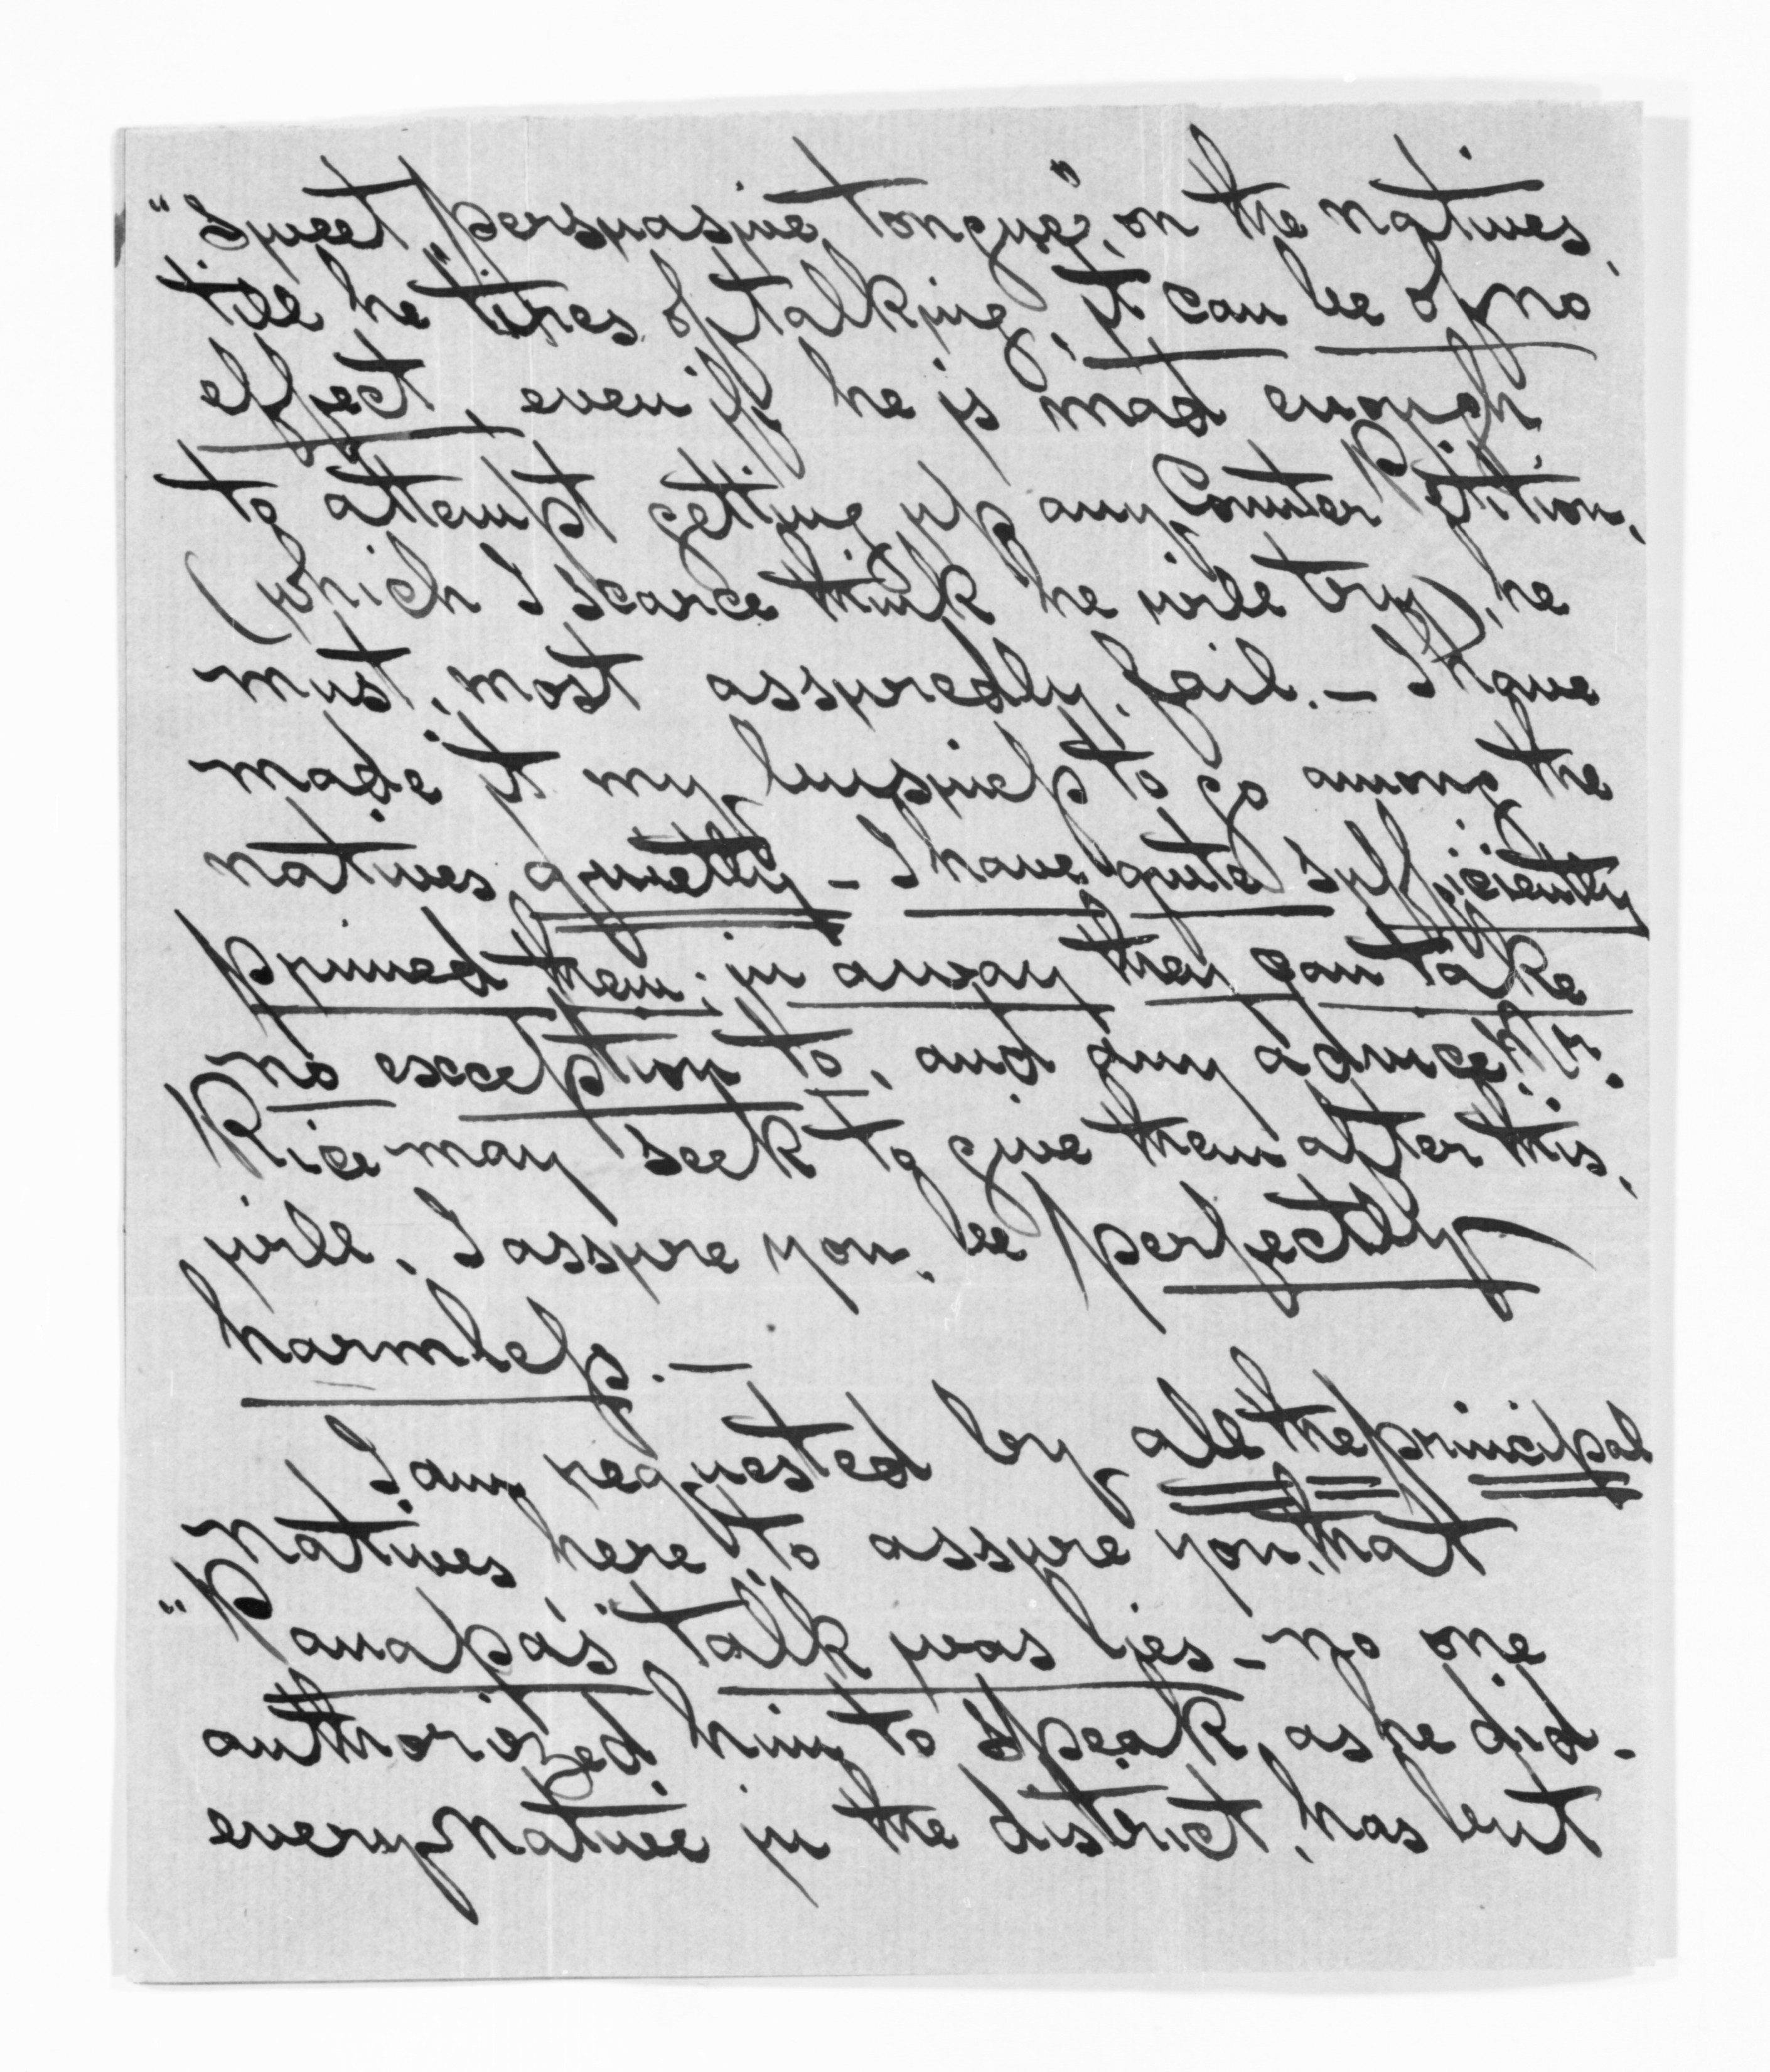 "Sweet, persuasive, tongue", on the natives,
till he "tires of talking", it can be of no
effect, even if he is mad enough
to attempt getting up any Counter Petition,
(which I scarce think he will try), he
must, most assuredly, fail. — I have
made it my business to go among the
natives quietly — I have quite sufficiently
primed them; in a way they can take
no exception to, and any advice Mr.
Rice may seek to give them after this,
will, I assure you, be perfectly
harmless. —
I am requested by all the principal
natives here, to assure you, that
"Panapa's" talk was lies — no one
authorized him to speak, as he did —
every Native in the district, has but